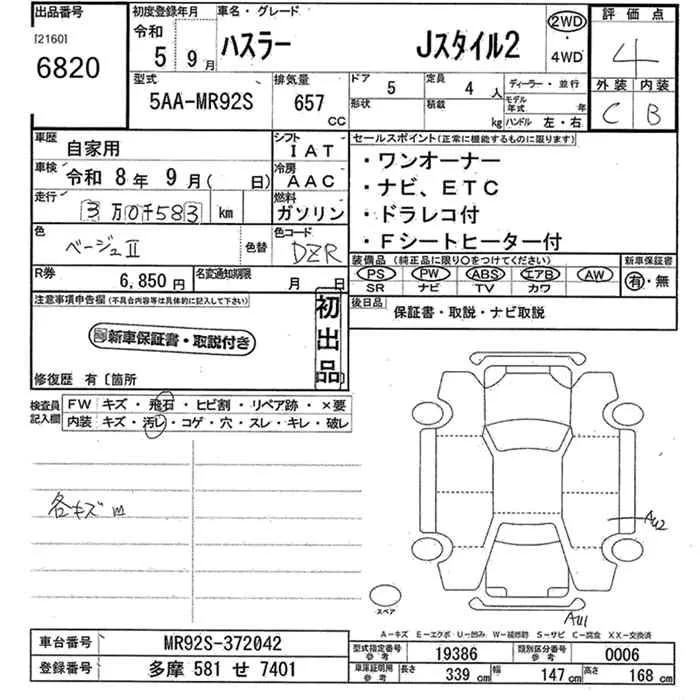 出品番号 初度登録年月 車名・グレード 評価点
[2160] 令和 2WD
6820 5 9月 ハスラー Jスタイル2 ・ 4
4WD
型式 排気量 ドア 定員 ディーラー・並行 外装 内装
5AA-MR92S 657 CC 5 4人 モデル年式 年 C B
形状 積載 kg ハンドル 左・右
車歴 自家用 シフト IAT セールスポイント(正常に機能するものに限ります)
車検 令和 8年 9月( 日) 冷房 AAC ・ワンオーナー
・ナビ、ETC
走行 3万0千583 km 燃料 ガソリン ・ドラレコ付
色 ベージュⅡ 色替 色コード DZR ・Fシートヒーター付
装備品(純正品に限り〇をつけてください) 新車保証書
R券 6,850円 名変通知期限 月 日 PS PW ABS エアB AW 有・無
SR ナビ TV カワ
注意事項申告欄(不具合内容等は具体的に記入して下さい) 初出品 後日品 保証書・取説・ナビ取説
新車保証書・取説付き
修復歴 有〔箇所
検査員記入欄 FW キズ・飛石・ヒビ割・リペア跡・×要
内装 キズ・汚レ・コゲ・穴・スレ・キレ・破レ
各キズ
AU2
スペア
AU1
A-キズ E-エクボ U-凹み W-補修跡 S-サビ C-腐食 XX-交換済
車台番号 MR92S-372042 型式指定番号 参考 19386 類別区分番号 参考 0006
登録番号 多摩 581 せ 7401 車庫証明用 参考 長さ 339 cm 幅 147 cm 高さ 168 cm